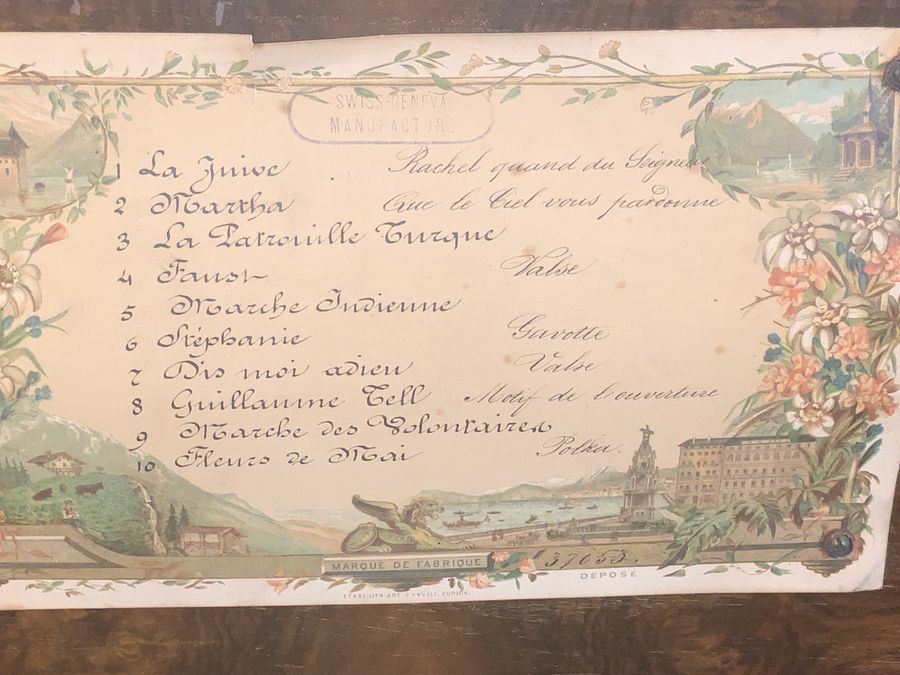 SWISS-GENEVA
MANUFACTURE
1 La Juive Rachel quand du Seigneur
2 Martha Que le Ciel vous pardonne
3 La Patrouille Turque
4 Faust Valse
5 Marche Indienne
6 Stéphanie Gavotte
7 Dis moi adieu Valse
8 Guillaume Tell Motif de l'ouverture
9 Marche des Volontaires
10 Fleurs de Mai Polka.
MARQUE DE FABRIQUE 37653.
DEPOSE
ETABL. LITH. ART. ZURICH.